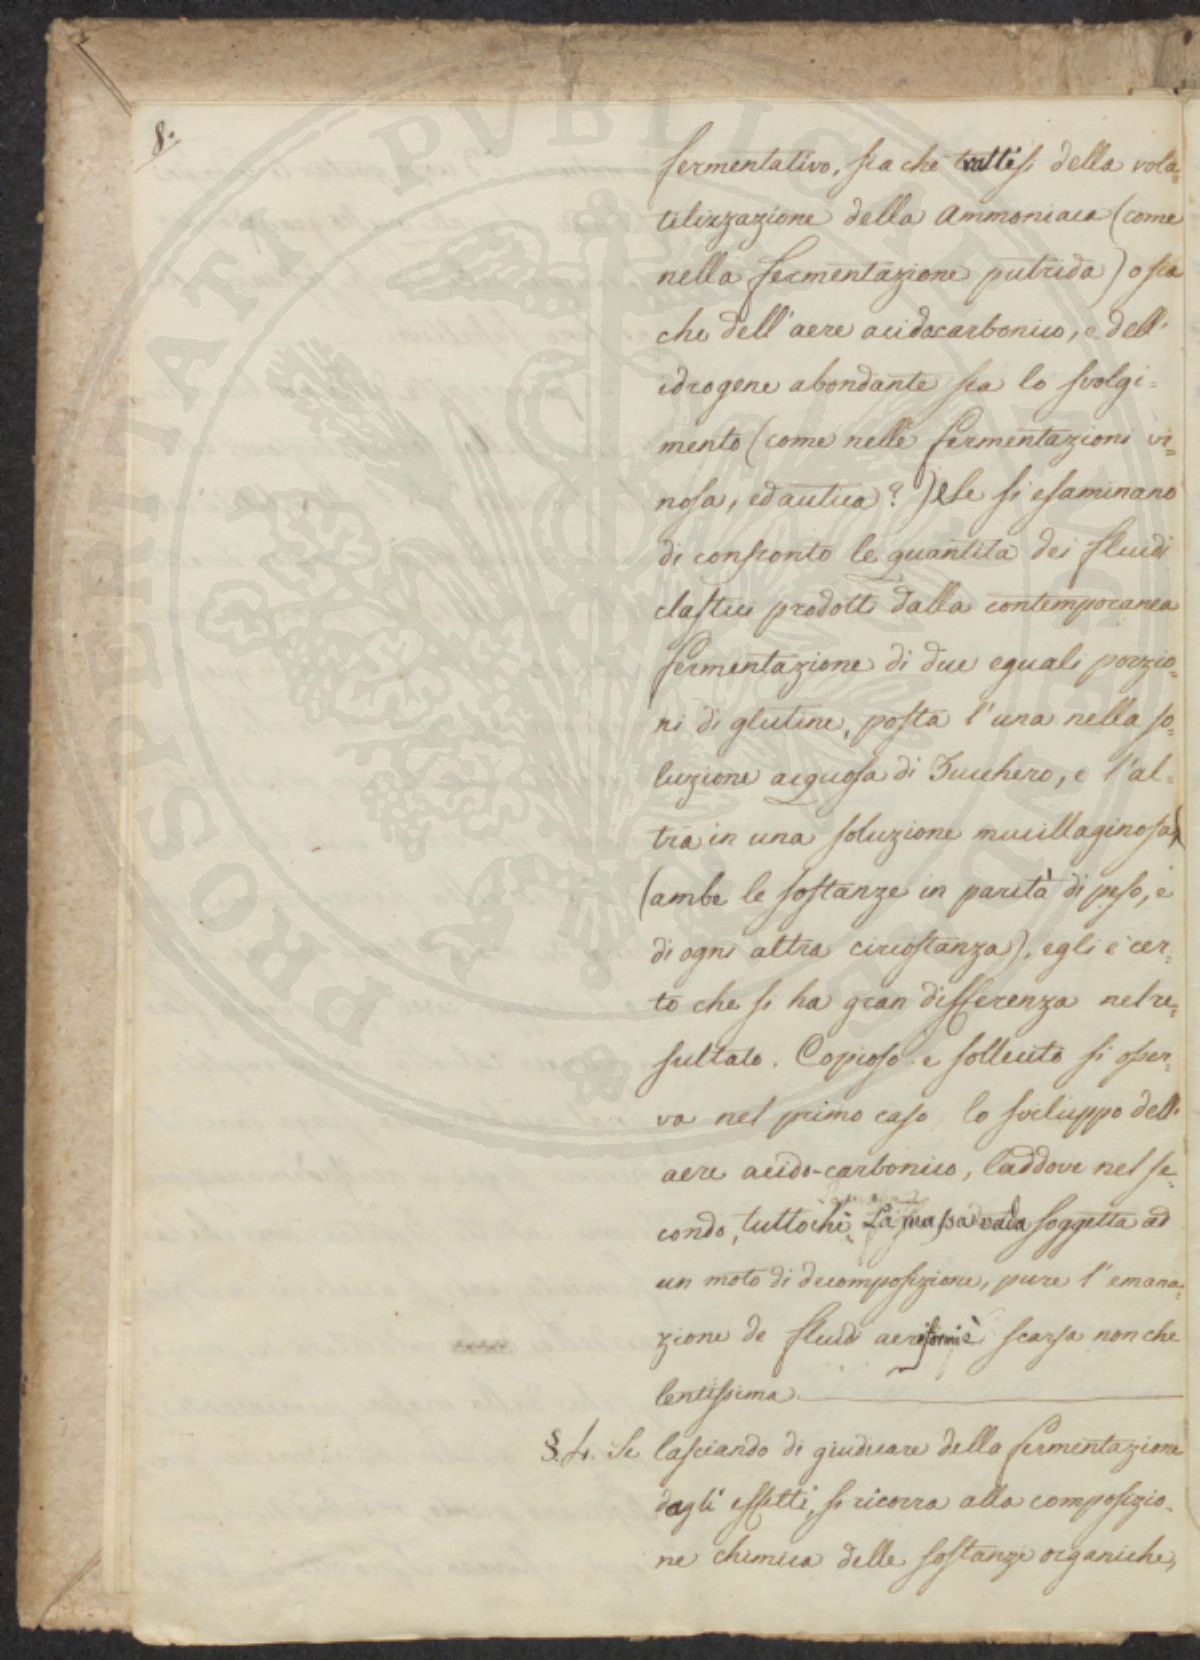 8.
fermentativo, sia che trattisi della vola=
tilizzazione della Ammoniaca (come
nella fermentazione putrida) o sia
che dell'aere acido carbonico, e dell'
idrogene abondante sia lo svolgi=
mento (come nelle fermentazioni vi=
nosa, ed acetica?) Se si esaminano
di confronto le quantità dei fluidi
elastici prodotti dalla contemporanea
fermentazione di due eguali porzio=
ni di glutine, posta l'una nella so=
luzione acquosa di Zucchero, e l'al=
tra in una soluzione mucillaginosa
(ambe le sostanze in parità di peso, e
di ogni altra circostanza), egli è cer=
to che si ha gran differenza nel re=
sultato. Copioso e sollecito si osser=
va nel primo caso lo sviluppo dell'
aere acido-carbonico, laddove nel se=
condo, tuttochè la massa vada soggetta ad
un moto di decomposizione, pure l'emana=
zione de fluidi aeriformi è scarsa non che
lentissima
§. 4. Se lasciando di giudicare della fermentazione
dagli effetti, si ricorra alla composizio=
ne chimica delle sostanze organiche,
PROSPERITATI PVBLICAE